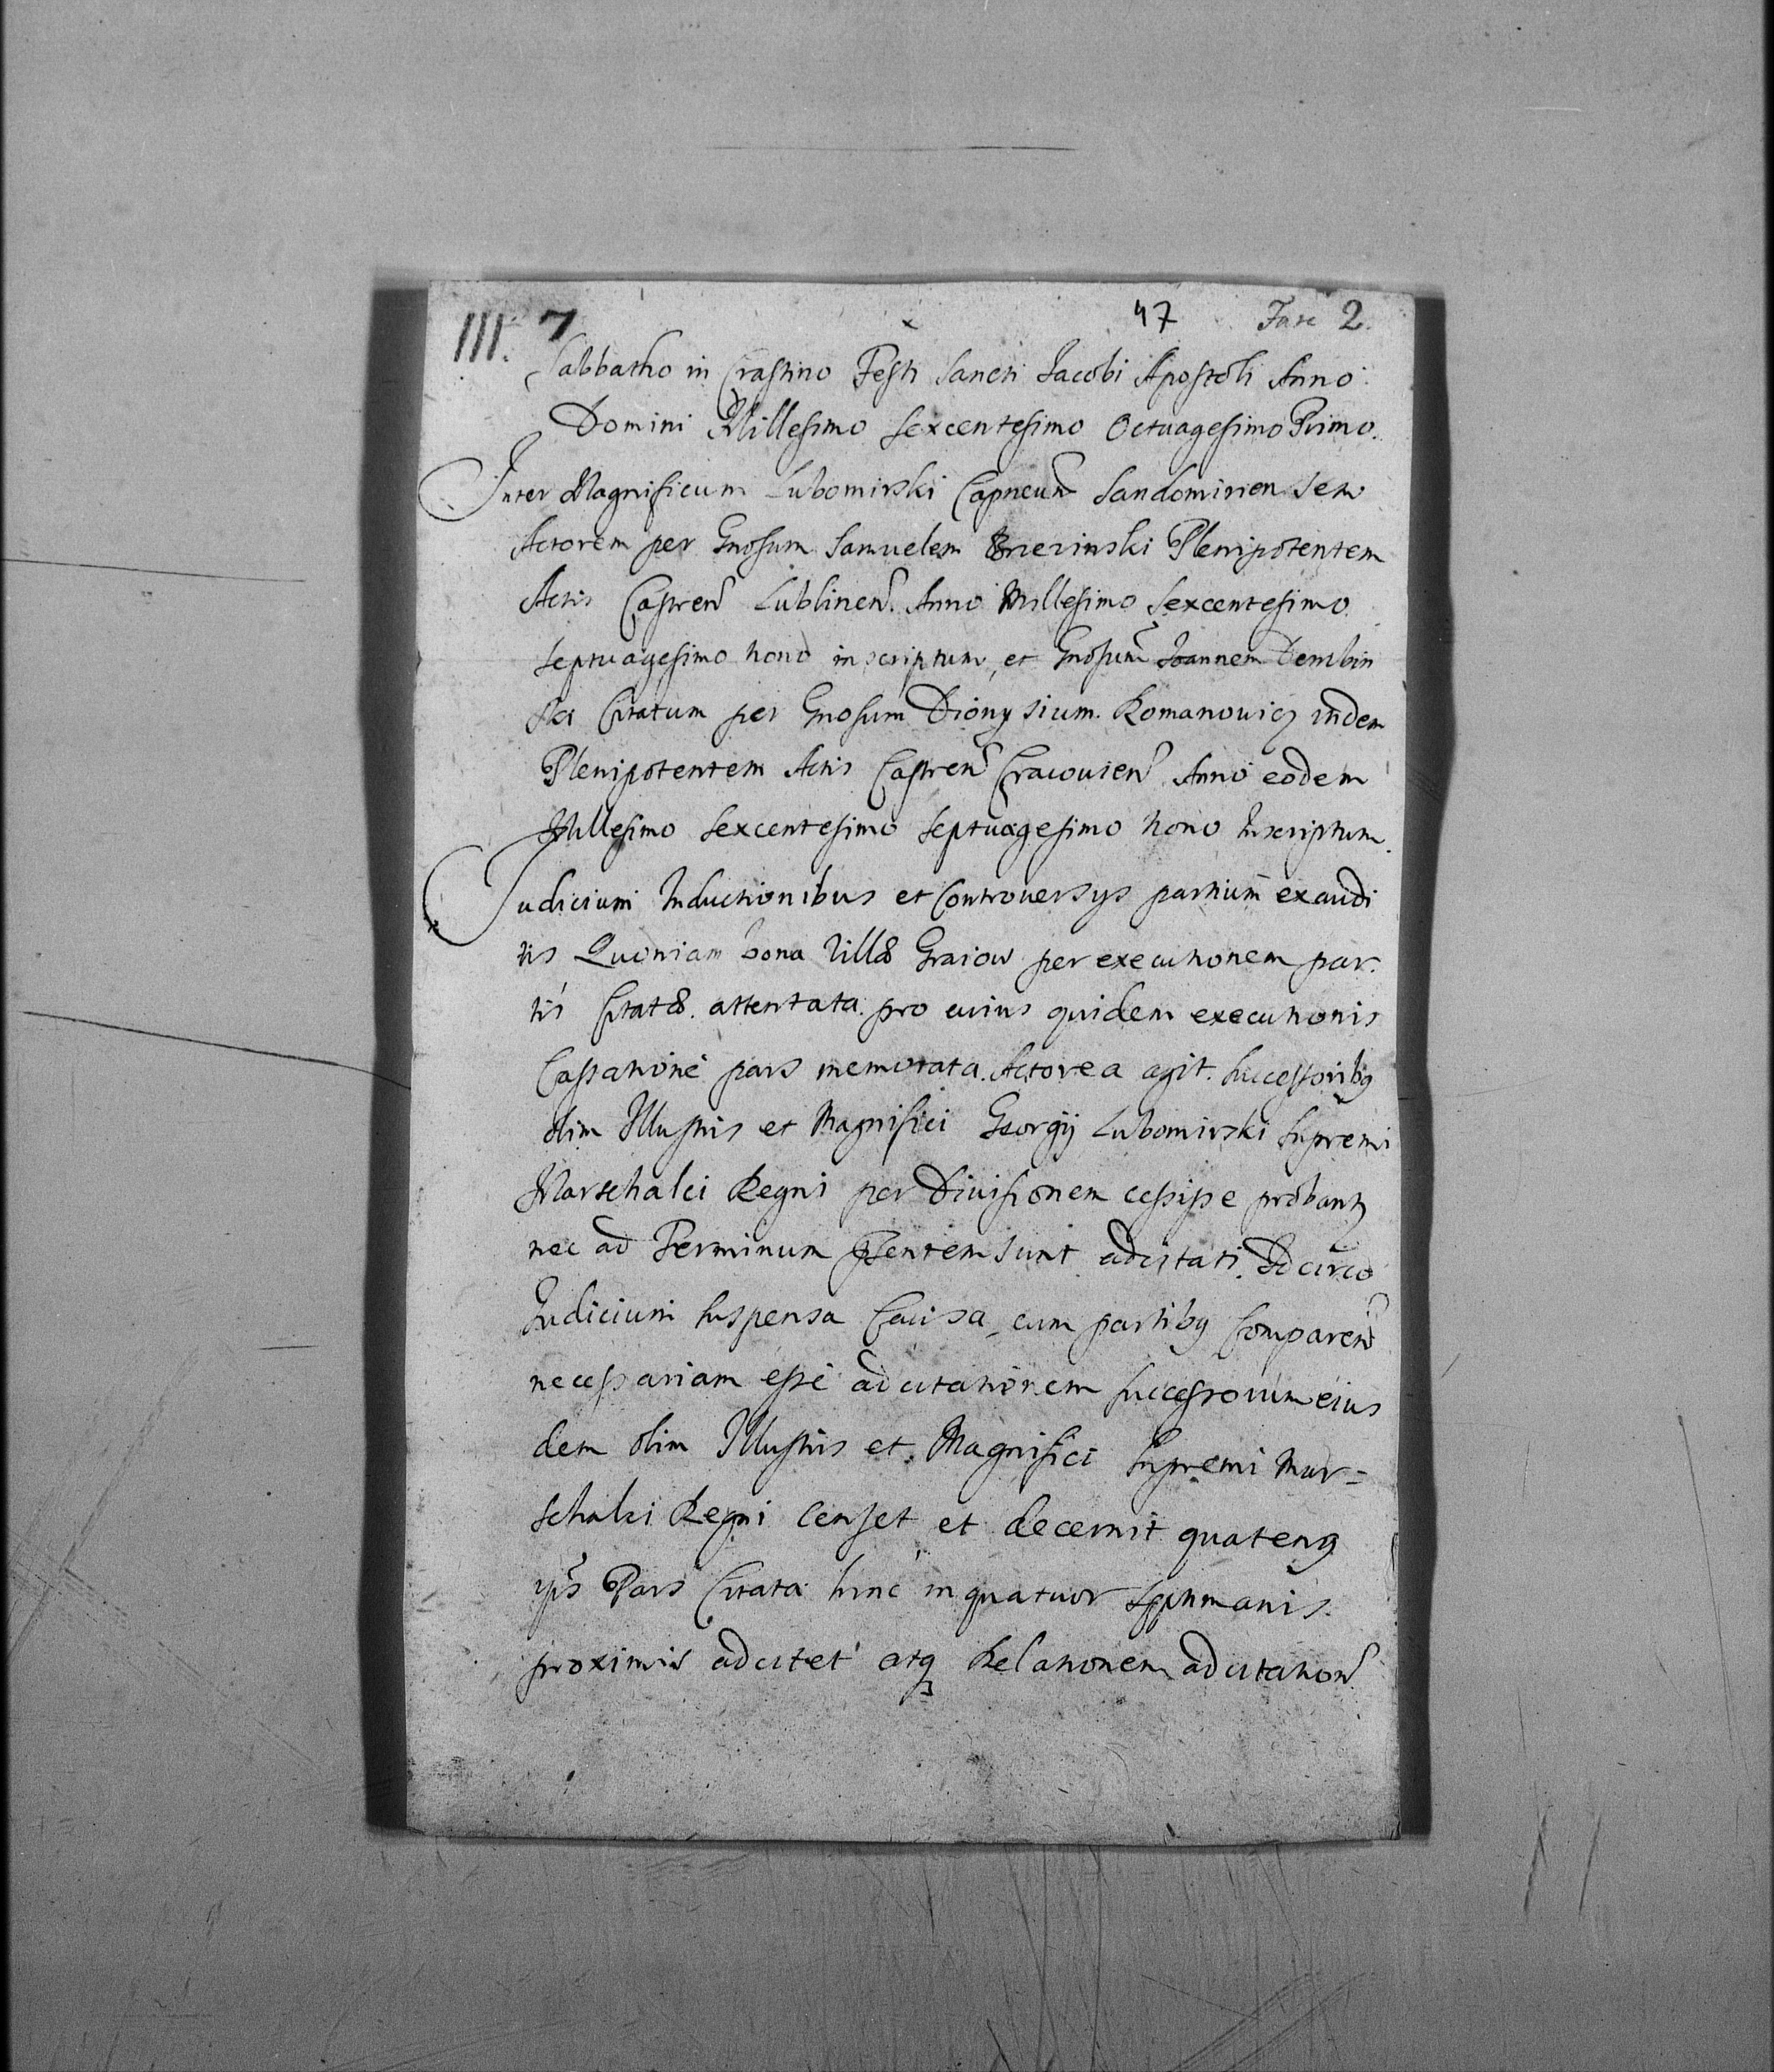 III. 7 47 Fasc 2.
Sabbatho in Crastino Festi Sancti Jacobi Apostoli Anno
Domini Millesimo Sexcentesimo Octuagesimo Primo.
Inter Magnificum Lubomirski Capneum Sandomirien Sem
Actorem per Gnosum Samuelem Plenipotentem
Actis Castren Lublinen. Anno Millesimo Sexcentesimo
Septuagesimo Nono inscriptum, et Gnosum Joannem Dembin
ski Citatum per Gnosum Dionysium Romanowicz itidem
Plenipotentem Actis Castren Cracovien Anno eodem
Millesimo Sexcentesimo Septuagesimo Nono Inscriptum.
Judicium Inductionibus et Controversys partium exaudi
tis Quoniam bona Villæ Graiow per executionem par
tis Citatæ. attentata. pro cuius quidem executionis
Cassatione pars memorata Actorea agit. Successoribq
olim Illustris et Magnifici Georgij Lubomirski Supremi
Marschalci Regni per Divisionem cessisse probantz
nec ad Terminum psentem sunt adcitati. Idcirco
Judicium suspensa Causa, cum partibq Comparen
necessariam esse adcitationem successorum eius
dem olim Illustris et Magnifici Supremi Mar=
schalci Regni Censet et decernit quatenq
ips Pars Citata hinc in quatuor Septimanis.
proximis adcitet atq Relationem adcitation